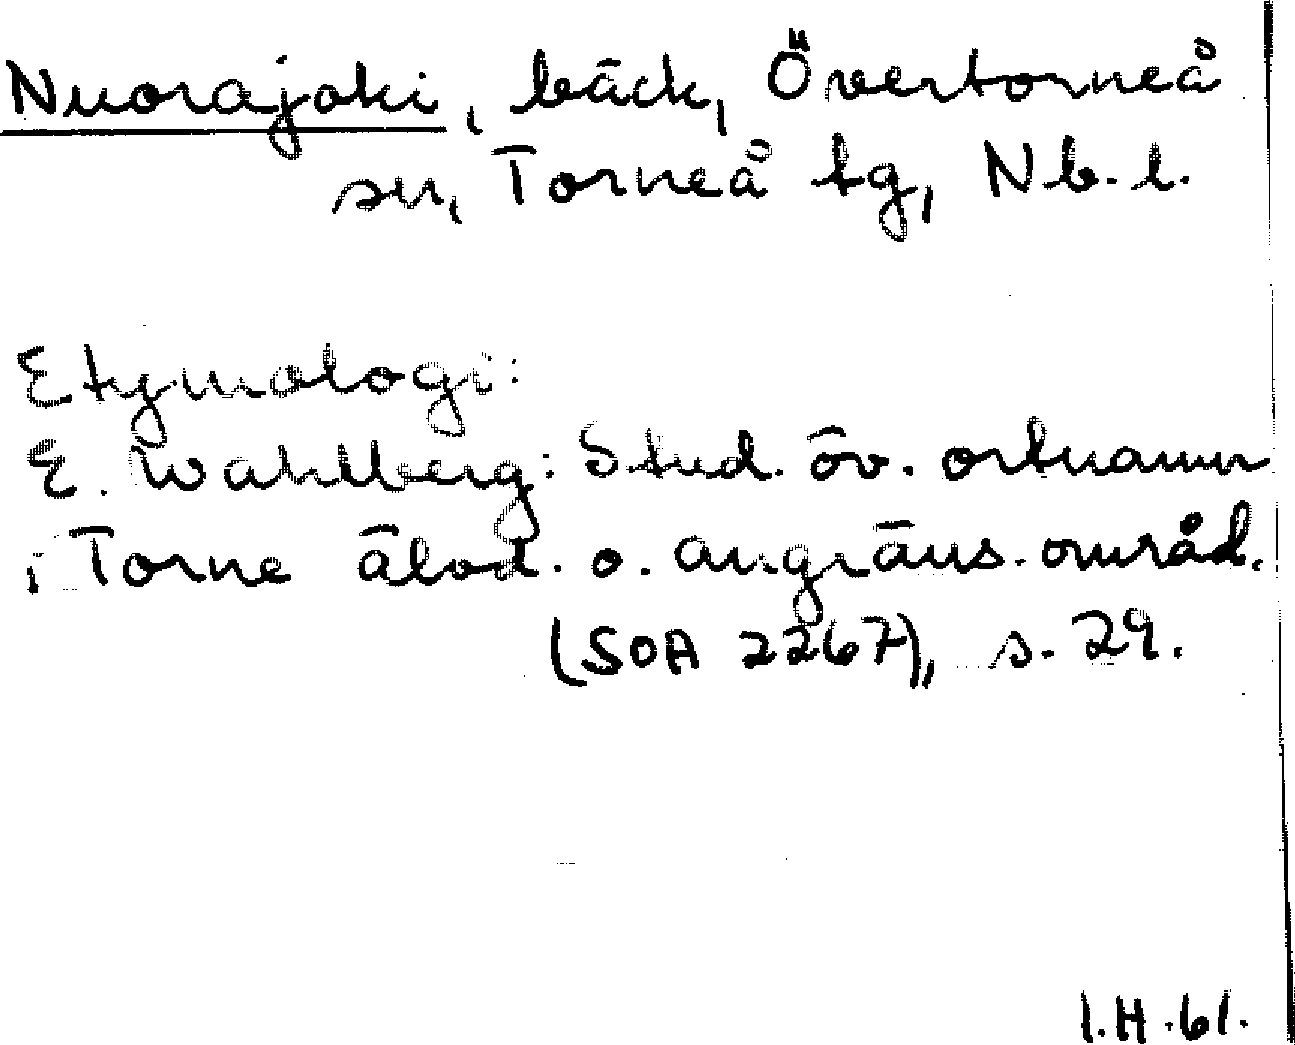 Nuorajoki, bäck, Övertorneå
sn, Torneå tg, Nb. l.
Etymologi:
E. Wahlberg: Stud. öv. ortnamn
i Torne älvd. o. angräns. områd.
(SOA 2267), s. 29.
I.H.61.